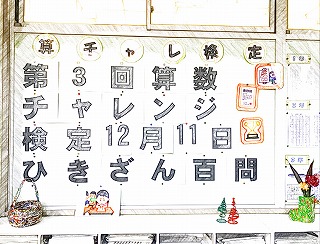 算チャレ検定
第3回算数
チャレンジ
検定12月11日
ひきざん百問